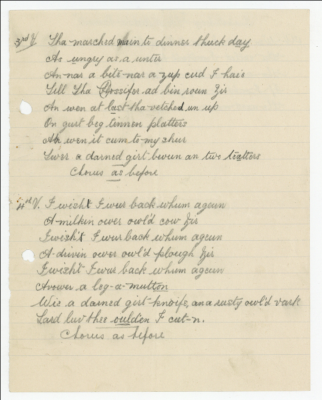 3rd V. Tha marched in to dinner thuck day
As ungry as a unter
An nar a bite nar a zup cud I haie
Till Tha Crossifer ad bin roun Zir
An wen at last tha vetched un up
On gurt beg tinnen platters
An wen it cum to my shur
Twer a darned girt bwun an two tratters
Chorus as before
4th V. I wisht I wur back whum ageun
A milken ower owld cow Zir
I wisht I wur back whum ageun
A driven ower owld plough Zir
I wisht I wur back whum ageun
Avower a leg-a-mutton
Wie a darned girt knoife, an a rusty owld vark
Lard luv thee oulden I cut-n.
Chorus as before